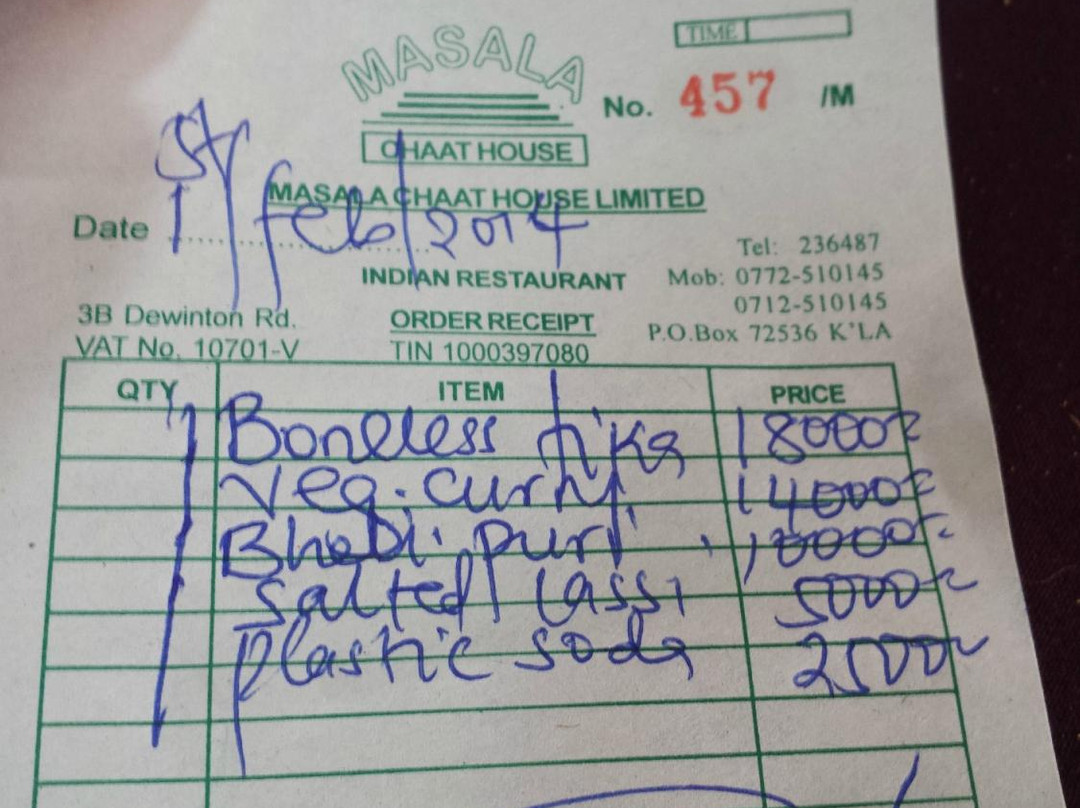 TIME
MASALA
No. 457 /M
CHAAT HOUSE
MASALA CHAAT HOUSE LIMITED
Date 1st/feb/2014
INDIAN RESTAURANT
Tel: 236487
Mob: 0772-510145
0712-510145
P.O.Box 72536 K'LA
3B Dewinton Rd.
VAT No. 10701-V
ORDER RECEIPT
TIN 1000397080
QTY ITEM PRICE
1 Boneless tika 18000
Veg. curry 14000
puri 10000
salted lassi 5000
plastic soda 2500